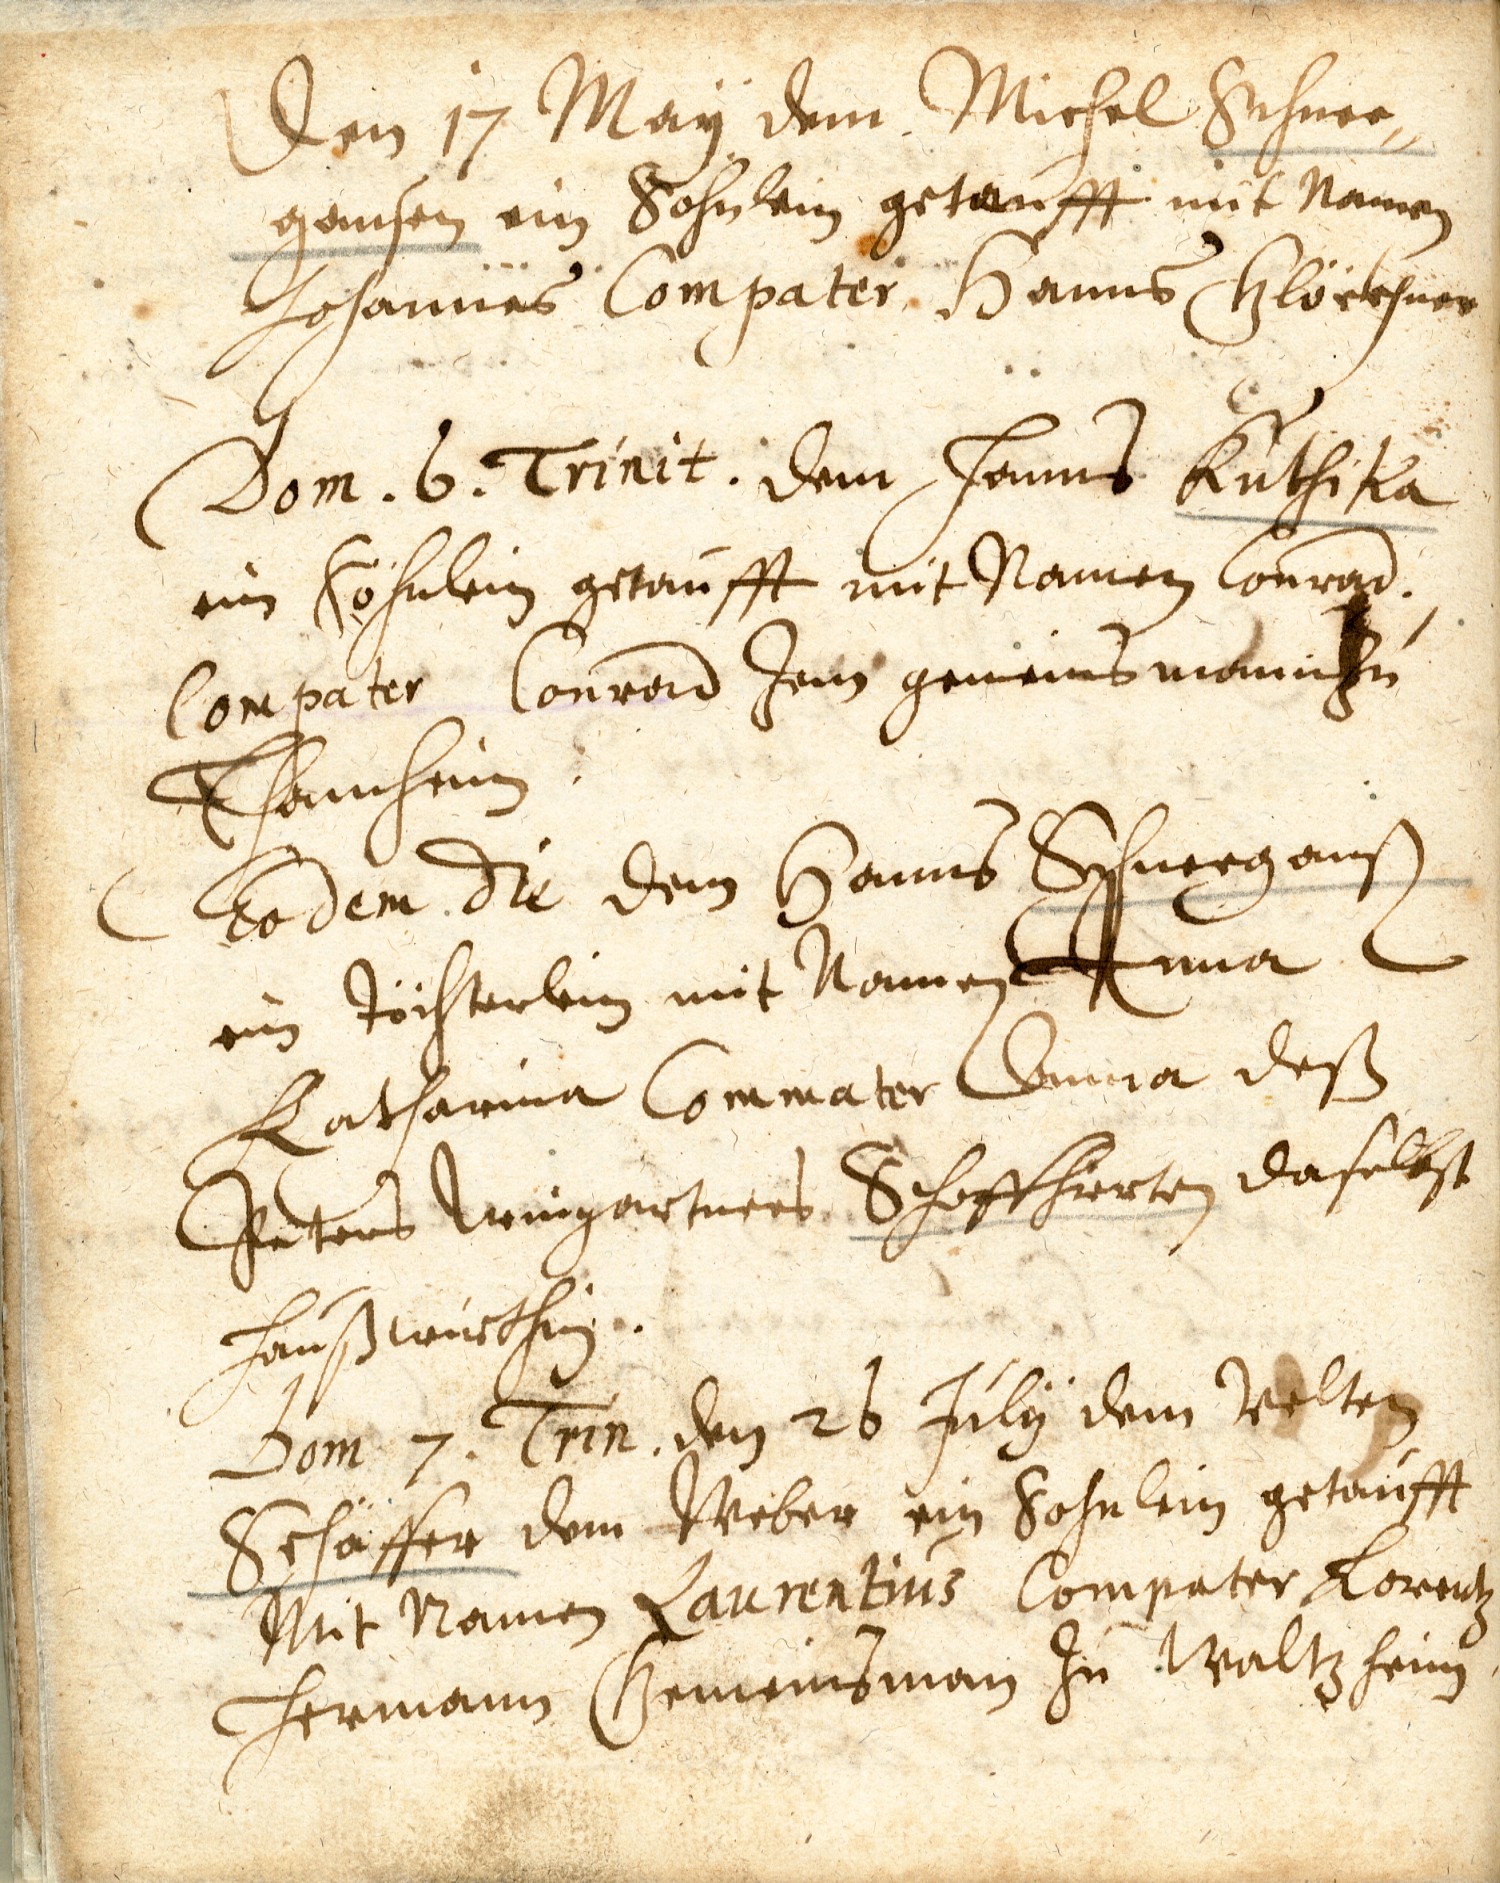 Den 17 May dem Michel Schnee„
gansen ein Sohnlein getaufft mit Namen
Johannes Compater Hanns Glöckhner
Dom. 6. Trinit. dem Hanns Kuthika
ein Söhnlein getaufft mit Namen Conrad.
Compater Conrad gemeinsmann zu
Thanheim
Eodem die dem Hanns Schneeganß
ein Töchterlein mit Namen Anna
Katharina Commater Anna deß
Peters Weingartners Schoffhirten daselbst
Haußwürthin.
Dom 7. Trin. den 26 July dem Velten
Schäffer dem Weber ein Sohnlein getaufft
Mit Namen Laurentius Compater Lorentz
Hermann Gemeinsman zu Waltzheim